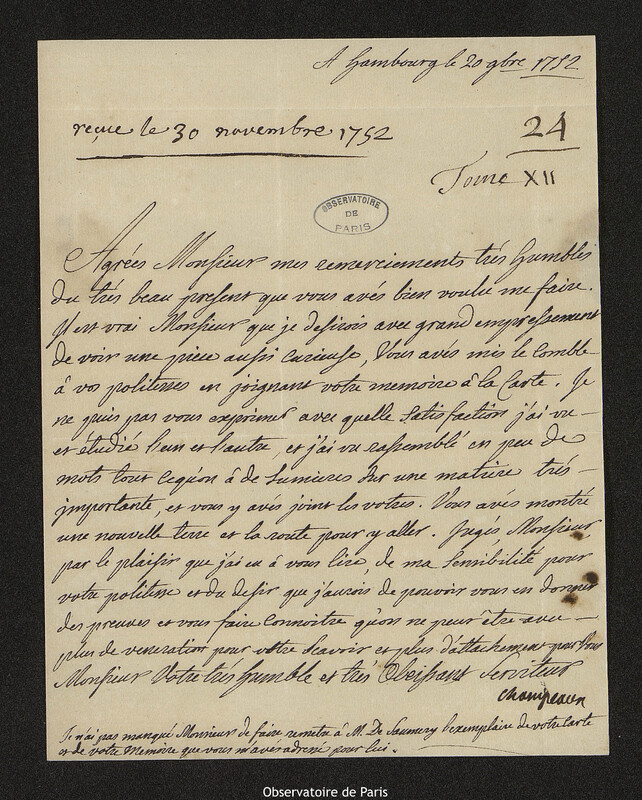 A Hambourg le 20 9bre 1752
reçue le 30 novembre 1752
24
Tome XII
OBSERVATOIRE
DE
PARIS
Agrées Monsieur mes remerciements trés humbles
du trés beau present que vous avés bien voulu me faire.
Il est vrai Monsieur que je desirois avec grand empressement
de voir une piece aussi curieuse, Vous avés mis le comble
à vos politesses en joignant votre memoire à la Carte. Je
ne puis pas vous exprimer avec quelle satisfaction j'ai vu
et étudié l'un et l'autre, et j'ai vu rassemblé en peu de
mots tout cequ'on à de Lumieres sur une matiere trés
importante, et vous y avés joint les votres. Vous avés montré
une nouvelle terre et la route pour y aller. Jugés Monsieur,
par le plaisir que j'ai eu à vous lire, de ma sensibilité pour
votre politesse et du desir que j'aurois de pouvoir vous en donner
des preuves et vous faire connoitre qu'on ne peut être avec
plus de veneration pour votre Scavoir et plus d'attachement pour Vous
Monsieur Votre trés humble et trés Obeissant Serviteur
Champeaux
Je n'ai pas manqué Monsieur de faire remetre à M. De Saumery l'exemplaire de votre Carte
et de votre Memoire que vous m'avés adressé pour lui.
Observatoire de Paris